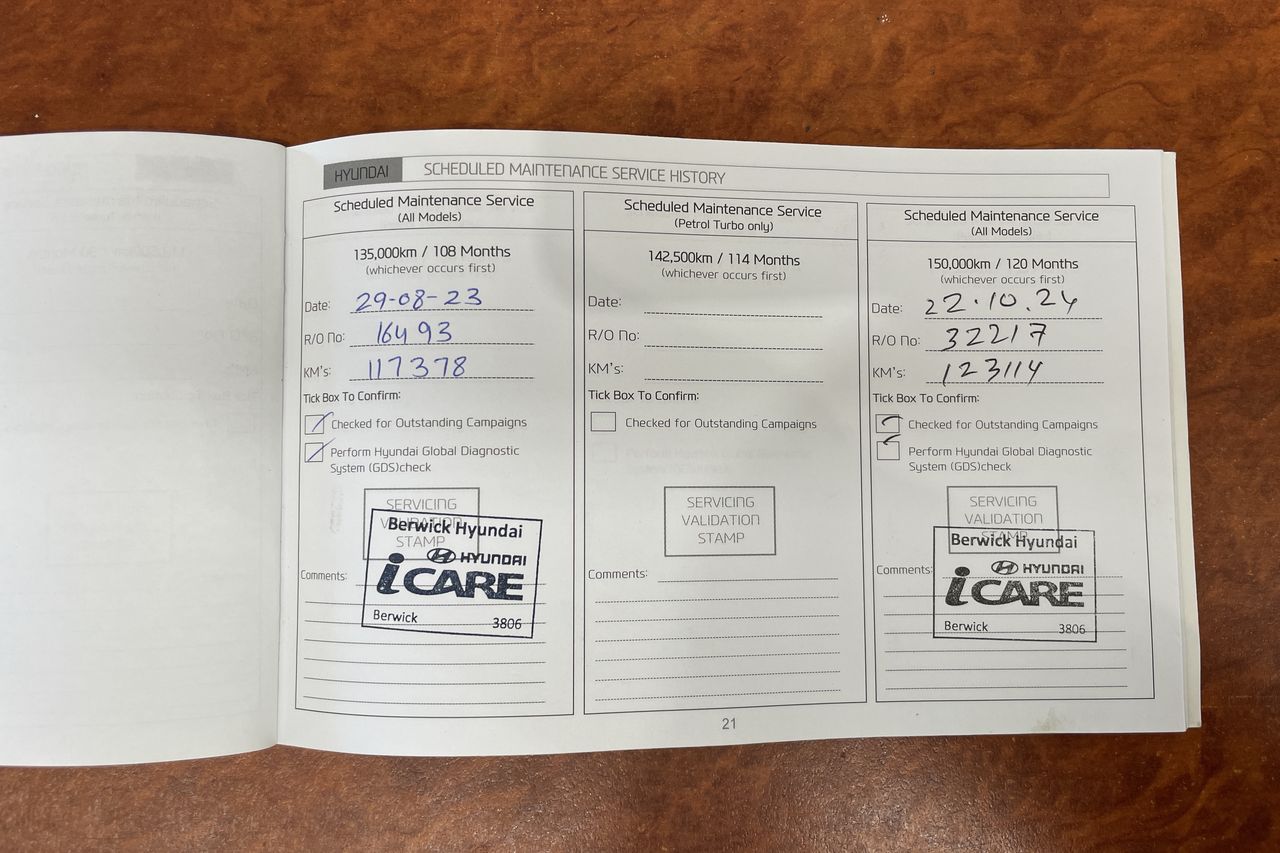 HYUNDAI SCHEDULED MAINTENANCE SERVICE HISTORY
Scheduled Maintenance Service
(All Models)
135,000km / 108 Months
(whichever occurs first)
Date: 29-08-23
R/O No: 16493
KM's: 117378
Tick Box To Confirm:
Checked for Outstanding Campaigns
Perform Hyundai Global Diagnostic
System (GDS)check
SERVICING
VALIDATION
STAMP
Berwick Hyundai
HYUNDAI
iCARE
Berwick 3806
Comments:
Scheduled Maintenance Service
(Petrol Turbo only)
142,500km / 114 Months
(whichever occurs first)
Date:
R/O No:
KM's:
Tick Box To Confirm:
Checked for Outstanding Campaigns
SERVICING
VALIDATION
STAMP
Comments:
Scheduled Maintenance Service
(All Models)
150,000km / 120 Months
(whichever occurs first)
Date: 22.10.24
R/O No: 32217
KM's: 123114
Tick Box To Confirm:
Checked for Outstanding Campaigns
Perform Hyundai Global Diagnostic
System (GDS)check
SERVICING
VALIDATION
STAMP
Berwick Hyundai
HYUNDAI
iCARE
Berwick 3806
Comments:
21